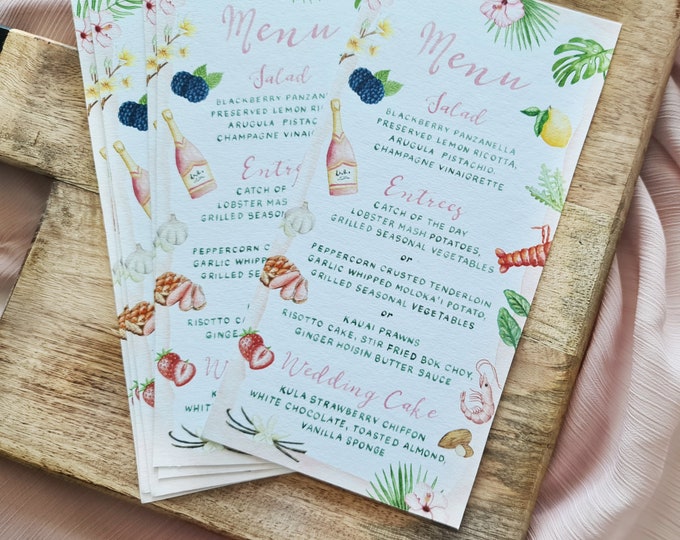 Menu
Salad
BLACKBERRY PANZANELLA
PRESERVED LEMON RICOTTA,
ARUGULA PISTACHIO,
CHAMPAGNE VINAIGRETTE
Entrees
CATCH OF THE DAY
LOBSTER MASH POTATOES,
GRILLED SEASONAL VEGETABLES
or
PEPPERCORN CRUSTED TENDERLOIN
GARLIC WHIPPED MOLOKA'I POTATO,
GRILLED SEASONAL VEGETABLES
or
KAUAI PRAWNS
RISOTTO CAKE, STIR FRIED BOK CHOY,
GINGER HOISIN BUTTER SAUCE
Wedding Cake
KULA STRAWBERRY CHIFFON
WHITE CHOCOLATE, TOASTED ALMOND,
VANILLA SPONGE
Menu
Salad
BLACKBERRY PANZANELLA
PRESERVED LEMON RICOTTA
ARUGULA PISTACHIO
CHAMPAGNE VINAIGR
Entre
CATCH OF
LOBSTER MASH
GRILLED SEASONAL
PEPPERCORN CRU
GARLIC WHIPPED
GRILLED SEASO
RISOTTO CA
GINGER H
W
KUL
WHITE